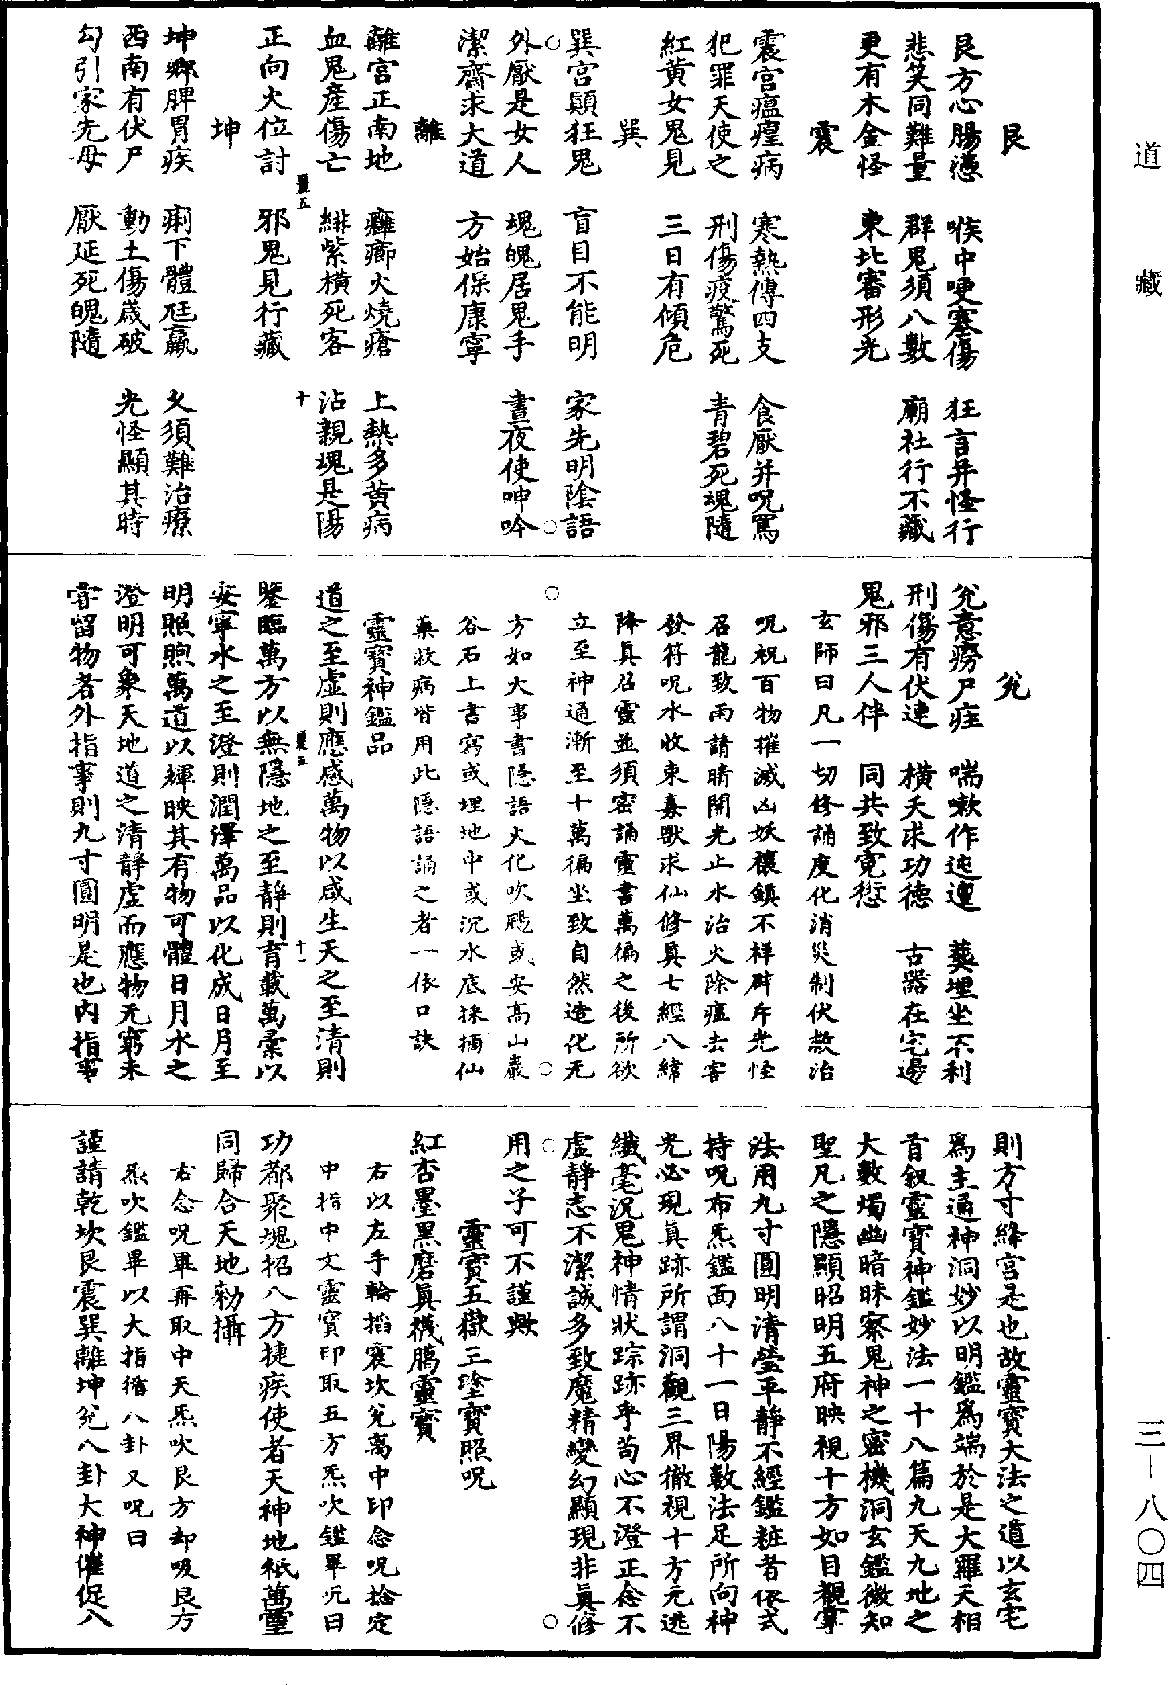 道藏
艮
艮方心腸懣 喉中哽塞傷 狂言并怪行
悲笑同難量 群鬼須八數 廟社行不藏
更有木金怪 東北審形光
震
震宫瘟瘟病 寒熱傳四支 食厭并呪罵
犯罪天使之 刑傷疫驚死 青碧死魂隨
紅黃女鬼見 三日有傾危
巽
巽宫顛狂鬼 盲目不能明 家先明陰語
外厭是女人 魂魄居鬼手 晝夜使呻吟
潔齋求大道 方始保康寧
離
離宫正南地 癰癤火燒瘡 上熱多黃病
血鬼產傷亡 緋紫橫死客 沾親塊是陽
正向火位討 邪鬼見行藏
坤
坤鄉脾胃疾 痢下體尪羸 久須難治療
西南有伏尸 動土傷歲破 光怪顯其時
勾引家先母 厭延死魄隨
兊
兊意癆尸疰 喘嗽作迍邅 葬埋坐不利
刑傷有伏連 橫夭求功德 古器在宅邊
鬼邪三人伴 同共致寃愆
玄師曰凡一切修誦度化消災制伏救治
呪祝百物摧滅凶妖禳鎮不祥辟斥光怪
召龍致雨請晴開光止水治火除瘟去害
發符呪水收束毒獸求仙修真七經八緯
降真召靈並須密誦靈書萬徧之後所欲
立至神通漸至十萬徧坐致自然造化无
方如大事書隱語火化吹颺或安高山巖
谷石上書窮或埋地中或沉水底採捕仙
藥救病皆用此隱語誦之者一依口訣
靈寶神鑑品
道之至虛則應感萬物以咸生天之至清則
鑒臨萬方以無隱地之至靜則育載萬彙以
安寧水之至澄則潤澤萬品以化成日月至
明照煦萬道以輝映其有物可體日月水之
澄明可象天地道之清靜虛而應物无窮未
甞留物者外指事則九寸圓明是也內指事
則方寸絳宫是也故靈寶大法之道以玄宅
爲主通神洞妙以明鑑爲端於是大羅天相
首叙靈寶神鑑妙法一十八篇九天九地之
大數燭幽暗昧察鬼神之密機洞玄鑑微知
聖凡之隱顯昭明五府映視十方如目覩掌
法用九寸圓明清瑩平靜不經鑑粧者依式
持呪布炁鑑面八十一日陽數法足所向神
光必現真跡所謂洞觀三界徹視十方无逃
纖毫況鬼神情狀踪跡乎苟心不澄正念不
虛靜志不潔誠多致魔精變幻顯現非真修
用之子可不謹歟
靈寶五嶽三塗寶照呪
紅杏墨黑磨真機鴈靈寶
右以左手輪掐寰坎兊离中印念呪捻定
中指中文靈寶印取五方炁吹鑑畢咒曰
功都聚塊招八方捷疾使者天神地祇萬靈
同歸合天地勑攝
右念呪畢再取中天炁吹艮方却吸艮方
炁吹鑑畢以大指掐八卦又呪曰
謹請乾坎艮震巽離坤兊八卦大神催促八
三－八〇四